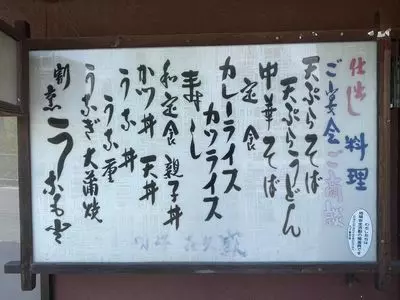 仕出し料理
ご宴会ご
天ぷらそば
天ぷらうどん
中華そば
定食
カレーライス
カツライス
寿し
和定食 親子丼
カツ丼 天丼
うな丼
うな重
うなぎ大蒲焼
割烹